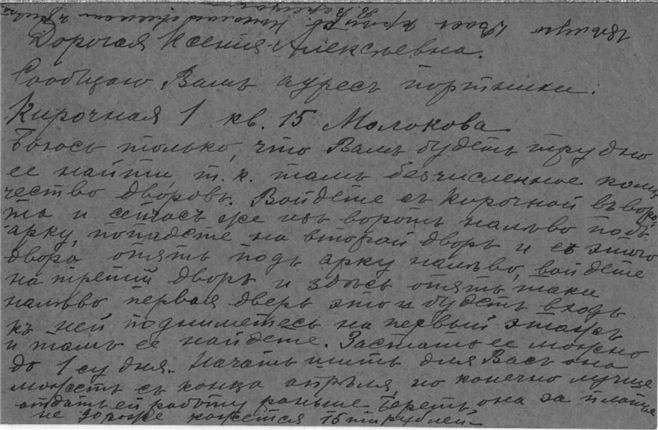 Дорогая Ксенія Алексѣевна.
Сообщаю Вамъ адресъ портнихи:
Кирочная 1 кв. 15 Молокова
Боюсь только, что Вамъ будетъ трудно
ее найти т. к. тамъ безчисленное коли
чество дворовъ. Войдете съ Кирочной въ воро
та и сейчасъ же изъ воротъ налѣво подъ
арку, попадете на второй дворъ и съ этого
двора опять подъ арку налѣво, войдете
на третій дворъ и здѣсь опять таки
налѣво первая дверь это и будетъ входъ
къ ней подниметесь на первый этажъ
и тамъ ее найдете. Застать ее можно
до 1 ч дня. Начать шить для Васъ она
можетъ съ конца апрѣля, но конечно лучше
отдать ей работу раньше. Беретъ она за платье
не дороже кажется 15ти рублей.
цѣлую Васъ